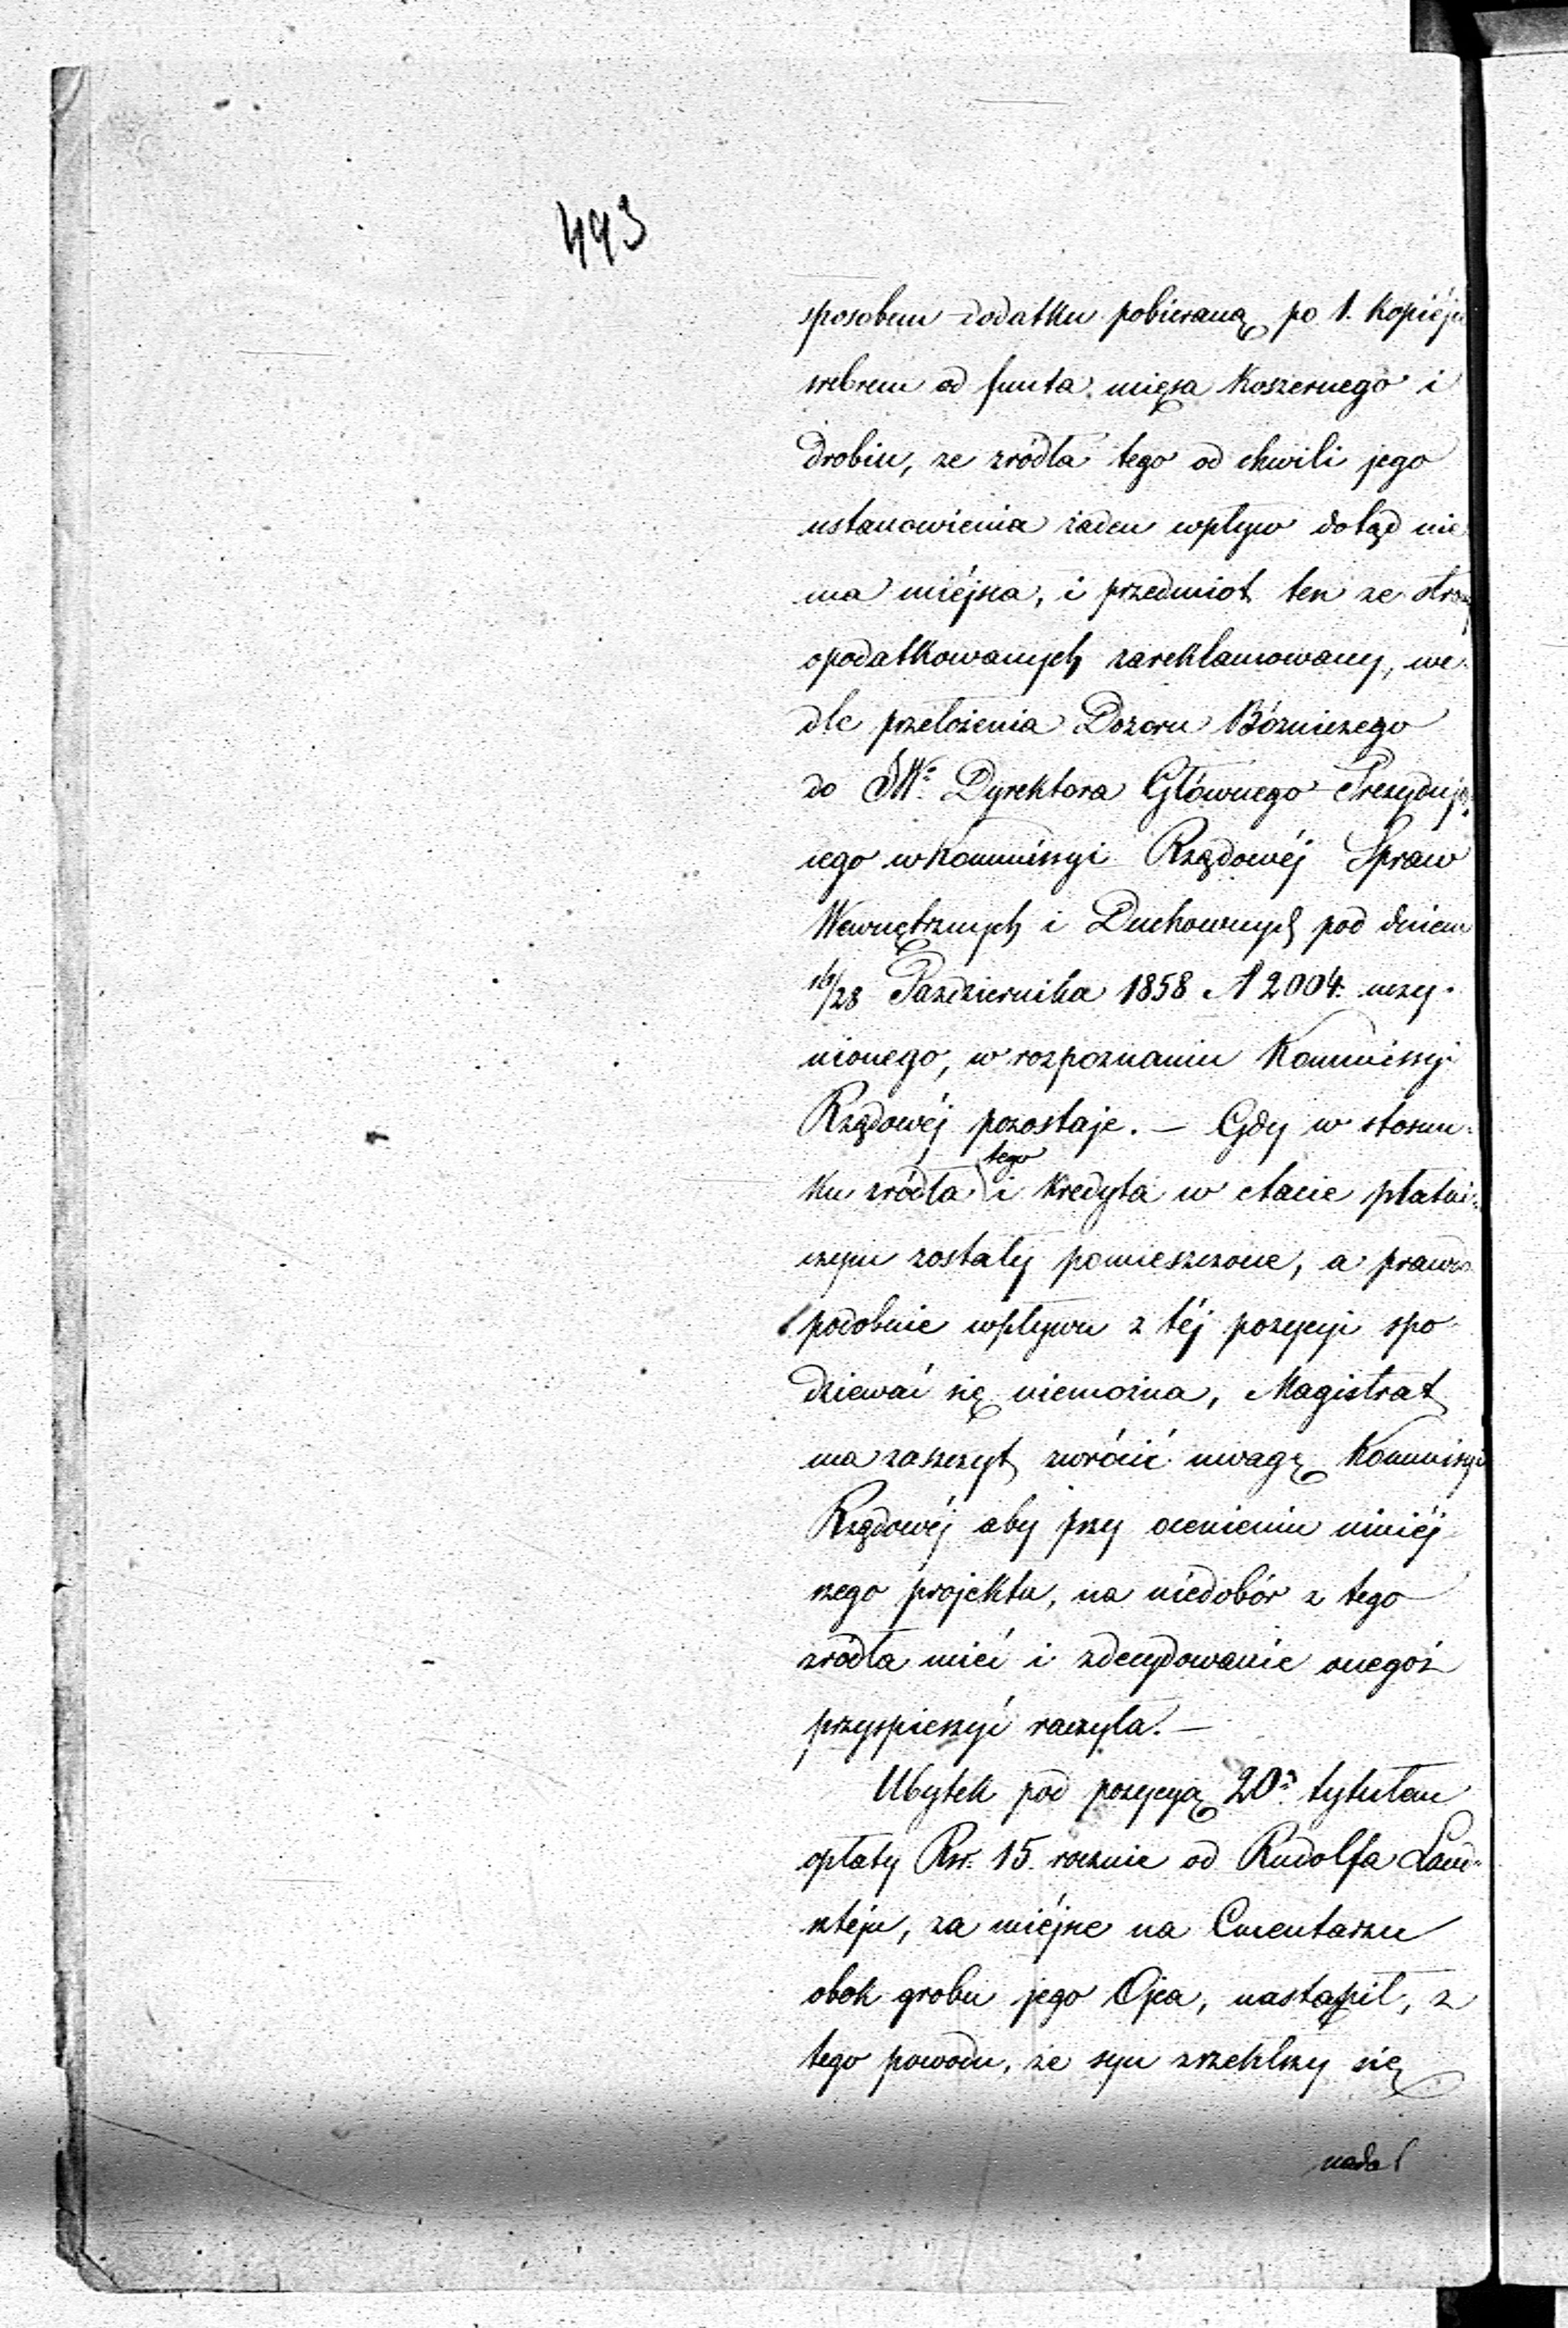 493
sposobem dodatku pobieraną po 1. kopiéjce
srebrem od funta mięsa koszernego i
drobiu, ze zródła tego od chwili jego
ustanowienia żaden wpływ dotąd nie
ma miéjsca, i przedmiot ten ze strony
opodatkowanych zareklamowany, we-
dle przełożenia Dozoru Bózniczego
do JW: Dyrektora Głównego Prezydują-
cego w Kommissyi Rządowéj Spraw
Wewnętrznych i Duchownych pod dniem
16/28 Października 1858 N 2004. uczy-
nionego, w rozpoznaniu Kommissyi
Rządowéj pozostaje. — Gdy w stosun-
ku zródła tego i kredyta w etacie płatni-
czym zostały pomieszczone, a prawdo-
podobnie wpływu z téj pozycyi spo-
dziewać się niemożna, Magistrat
ma zaszczyt zwrócić uwagę Kommissyi
Rządowéj aby przy ocenieniu niniéj
szego projektu, na niedobór z tego
zródła mieć i zdecydowanie onegoż
przyspieszyć raczyła. —
Ubytek pod pozycyą 20ą tytułem
opłaty Rsr. 15. rocznie od Rudolfa
za miéjsce na Cmentarzu
obok grobu jego Ojca, nastąpił, z
tego powodu, że syn zrzekłszy się
nadal